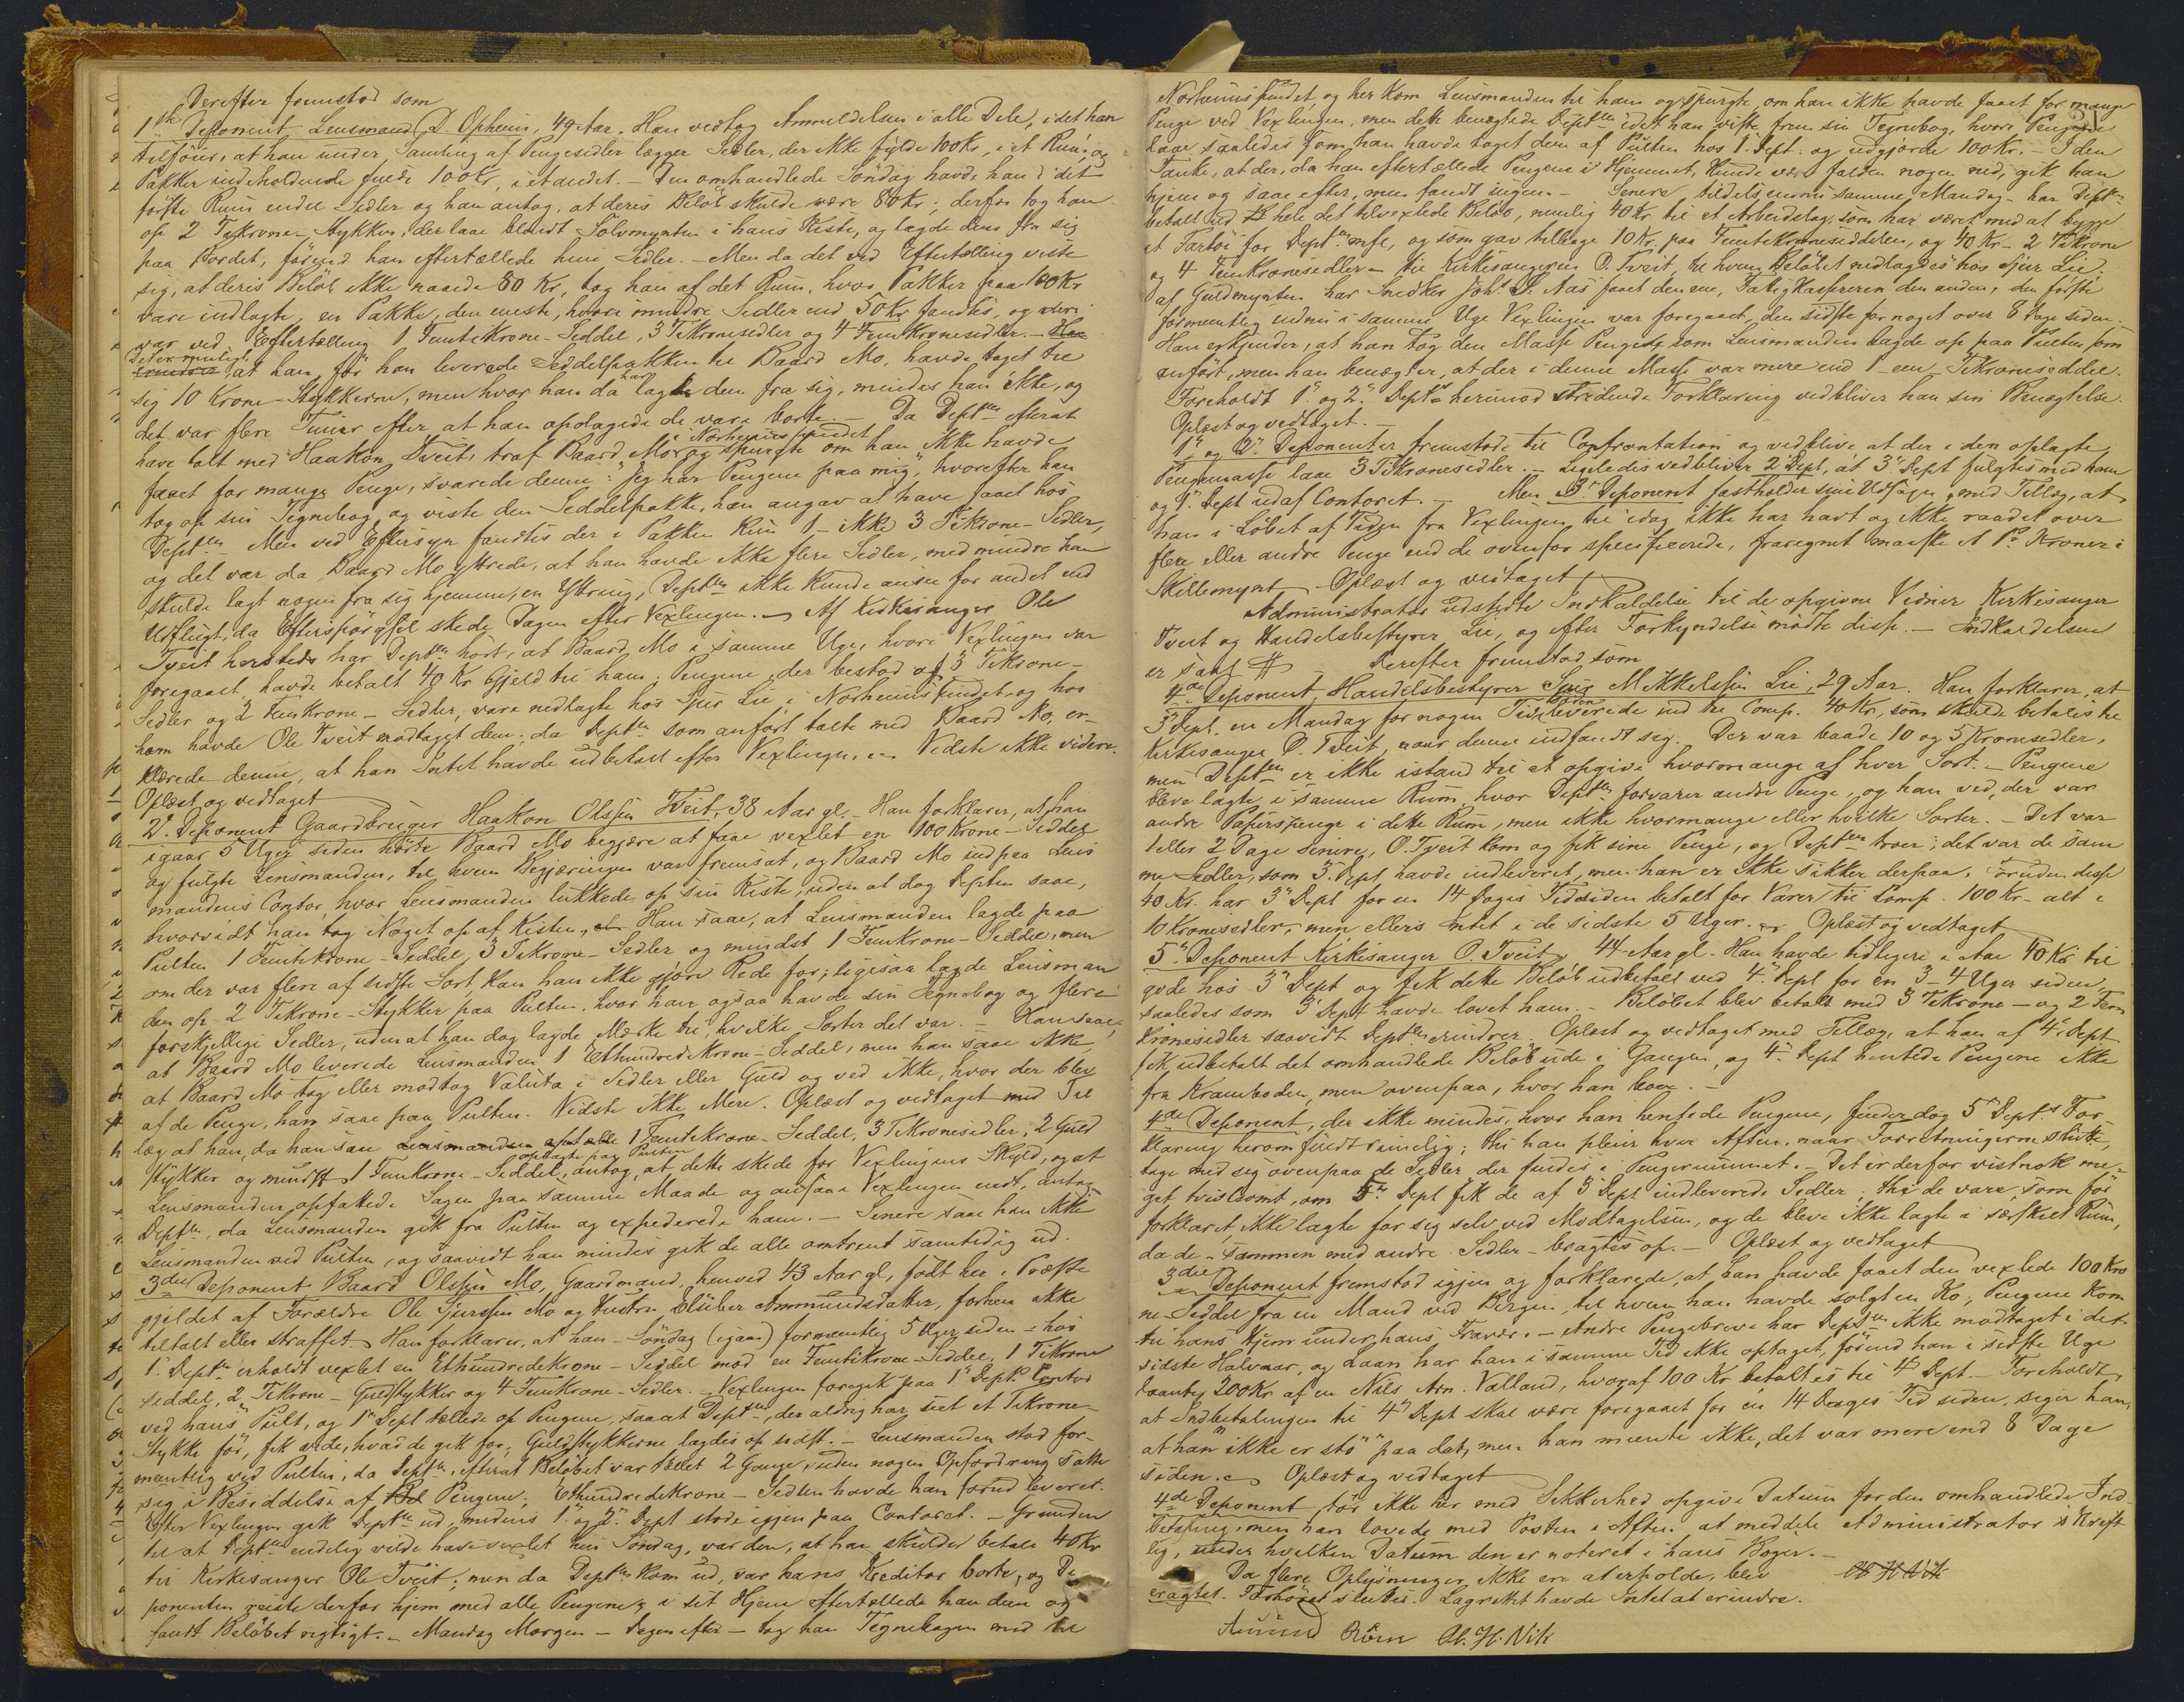 Derefter fremstod som
1ste Deponent Lensmand D. Opheim, 49 Aar. Han vedtog Anmeldelsen i alle Dele, idet han
tilföier, at han under Samling af Pengesedler lægger Sedler, der ikke fylde 100 Kr, i et Rum og
Pakker indeholdende fulde 100 Kr, i et andet. - Den omhandlede Söndag havde han i det
förste Rum endel Sedler og han antog, at deres Belöb skulde være 80 Kr; derfor tog han
op 2 Tikrone-Stykker, der laae blandt Sölvmynten i hans Kiste, og lagde dem fra sig
paa Bordet, förend han eftertællede hine Sedler. - Men da det ved Eftertælling viste
sig, at deres Belöb ikke naaede 80 Kr, tog han af det Rum, hvor Pakker paa 100 Kr
vare indlagte, en Pakke, den eneste, hvori mindre Sedler end 50 Kr fandtes, og deri
var ved Eftertælling 1 Femtikrone-Seddel, 3 Tikronesedler og 4 Femkronesedler. - Han
Det er muligt
erindrer at han, för han leverede Seddelpakken til Baard Mo, havde taget til
sig 10 Krone-Stykkerne, men hvor han da har lagt dem fra sig, mindes han ikke, og
det var flere Timer efter at han opdagede de vare borte. - Da Deptn efterat
have talt med Haakon Tveit traf Baard Mo i Norheimssundet og spurgte om han ikke havde
faaet for mange Penge, svarede denne: "Jeg har Pengene paa mig", hvorefter han
tog op sin Tegnebog og viste den Seddelpakke, han angav at have faaet hos
Deptn. Men ved Eftersyn fandtes der i Pakken kun 1 - ikke 3 Tikrone-Sedler,
og det var da Baard Mo yttrede, at han havde ikke flere Sedler, med mindre han
skulde lagt nogen fra sig hjemme, en Yttring, Deptn ikke kunde ansee for andet end
Udflugt, da Efterspörgsel skede Dagen efter Vexlingen. - Af Kirkesanger Ole
Tveit hersteds har Deptn hört, at Baard Mo i samme Uge, hvori Vexlingen var
foregaaet, havde betalt 40 Kr Gjeld til ham. Pengene, der bestod af 3 Tikrone-
Sedler og 2 Femkrone-Sedler, vare nedlagte hos Sjur Lie i Norheimssundet og hos
ham havde Ole Tveit modtaget dem; da Deptn som anfört talte med Baard Mo, er-
klærede denne, at han Intet havde udbetalt efter Vexlingen. - Vidste ikke videre.
Oplæst og vedtaget
2. Deponent Gaardbruger Haakon Olssen Tveit, 38 Aar gl. - Han forklarer, at han
igaar 5 Uger siden hörte Baard Mo begjære at faae vexlet en 100 Krone-Seddel
og fulgte Lensmanden, til hvem Begjæringen var fremsat, og Baard Mo ind paa Lens
mandens Contor, hvor Lensmanden lukkede op sin Kiste, uden at dog Deptn saae,
hvorvidt han tog Noget op af Kisten, Han saae, at Lensmanden lagde paa
Pulten 1 Femtikrone-Seddel, 3 Tikrone-Sedler og mindst 1 Femkrone-Seddel, men
om der var flere af sidste Sort, kan han ikke gjöre Rede for; ligesaa lagde Lensman
den op 2 Tikrone-Stykker paa Pulten, hvor han ogsaa havde sin Tegnebog og flere
forskjellige Sedler, uden at han dog lagde Mærke til, hvilke Sorter det var. - Han saae,
at Baard Mo leverede Lensmanden 1 Ethundredekrone-Seddel, men han saae ikke,
at Baard Mo tog eller modtog Valuta i Sedler eller Guld og ved ikke, hvor der blev
af de Penge, han saae paa Pulten. Vidste ikke Mere. Oplæst og vedtaget med Til
læg at han, da han saae Lensmanden optælle 1 Femtikrone-Seddel, 3 Tikronesedler, 2 Guld
oplagte paa Pulten
stykker og mindst 1 Femkrone-Seddel, antog, at dette skede for Vexlingens Skyld, og at
Lensmanden opfattede Sagen paa samme Maade og ansaae Vexlingen endt, antog
Deptn, da Lensmanden gik fra Pulten og expederede ham. - Senere saae han ikke
Lensmanden ved Pulten, og saavidt han mindes gik de alle omtrent samtidig ud.
3die Deponent Baard Olssen Mo, Gaardmand, henved 43 Aar gl, födt her i Præste
gjeldet af Forældre Ole Sjurssen Mo og Hustru Ammundsdatter, forhen ikke
tiltalt eller straffet. Han forklarer, at han - Söndag (igaar) formentlig 5 Uger siden - hos
1. Deptn erholdt vexlet en Ethundredekrone-Seddel mod en Femtikrone-Seddel, 1 Tikrone
seddel, 2 Tikrone-Guldstykker og 4 Femkrone-Sedler. - Vexlingen foregik paa 1 Depts Contor
ved hans Pult, og 1ste Dept tællede op Pengene, saaat Deptn, der aldrig har seet et Tikrone-
Stykke för, fik vide, hvad de gik for; Guldstykkerne lagdes op sidst. - Lensmanden stod for-
mentlig ved Pulten, da Deptn, efterat Belöbet var tællet 2 Gange, uden nogen Opfordring satte
sig i Besiddelse af Bel Pengene; Ethundredekrone-Sedlen havde han forud leveret.
Efter Vexlingen gik Deptn ud, medens 1. og 2. Dept stode igjen paa Contoret. - Grunden
til at Deptn endelig vilde have vexlet hin Söndag, var den, at han skulde betale 40 Kr
til Kirkesanger Ole Tveit; men da Deptn kom ud, var hans Kreditor borte, og De
ponenten reiste derfor hjem med alle Pengene; i sit Hjem eftertællede han dem og
fandt Belöbet rigtigt. - Mandag Morgen - Dagen efter - tog han Tegnebogen med til
Norheimssundet, og her kom Lensmanden til ham og spurgte, om han ikke havde faaet for mange
Penge ved Vexlingen, men dette benægtede Deptn idet han viste frem sin Tegnebog, hvori Pengene
laae saaledes som han havde taget dem af Pulten hos 1. Dept. og udgjorde 100 Kr. - I den
Tanke, at der, da han eftertællede Pengene i Hjemmet, kunde være falden nogen ned, gik han
hjem og saae efter, men fandt ingen. - Senere tildels samme Mandag - har Deptn
betalt ud hele det tilvexlede Belöb, nemlig 40 Kr til et Arbeidslag, som har været med at bygge
et Fartöi for Deptn mfl, og som gav tilbage 10 Kr. paa Femtikronesedlen, og 40 Kr - 2 Tikrone
og 4 Femkronesedler - til Kirkesangeren O. Tveit, til hvem Belöbet nedlagdes hos Sjur Lie;
af Guldmynten har Snedker Johs S. Aas faaet den ene, Fattigkassereren den anden, den förste
formentlig endnu i samme Uge Vexlingen var foregaaet, den sidste for noget over 8 Dage siden.
Han erkjender, at han tog den Masse Penge, som Lensmanden lagde op paa Pulten som
anfört, men han benægter, at der i denne Masse var mere end 1 - een - Tikroneseddel.
Foreholdt 1. og 2. Depts herimod stridende Forklaring vedbliver han sin Benægtelse.
Oplæst og vedtaget. -
1. og 2. Deponenter fremstode til Confrontation og vedblive at der i den oplagte
Pengemasse laae 3 Tikronesedler. - Ligeledes vedbliver 2 Dept, at 3. Dept fulgtes med ham
og 1. Dept ud af Contoret. - Men 3. Deponent fastholder sine Udsagn, med Tillæg, at
han i Löbet af Tiden fra Vexlingen til idag ikke har havt og ikke raadet over
flere eller andre Penge end de ovenfor specificerede, fraregnet maaske et Pr Kroner i
Skillemynt. Oplæst og vedtaget
Administrator udstedte Indkaldelse til de opgivne Vidner Kirkesanger
Tveit og Handelsbestyrer Lie, og efter Forkyndelse mödte disse. - Indkaldelsen
er saal # Derefter fremstod som
4de Deponent, Handelsbestyrer Sjur Mikkelssen Lie, 29 Aar. Han forklarer, at
3 Dept. en Mandag for nogen Tid siden leverede ind til Comp. 40 Kr, som skulde betales til
Kirkesanger O. Tveit, naar denne indfandt sig. Der var baade 10 og 5 Kronesedler,
men Deptn er ikke istand til at opgive hvormange af hver Sort. - Pengene
bleve lagte i samme Rum, hvor Deptn forvarer andre Penge, og han ved, der var
andre Papirspenge i dette Rum, men ikke hvormange eller hvilke Sorter. - Det var
1 eller 2 Dage senere, O. Tveit kom og fik sine Penge, og Deptn troer, det var de sam
me Sedler, som 3. Dept havde indleveret, men han er ikke sikker derpaa. Foruden disse
40 Kr. har 3 Dept for en 14 Dages Tid siden betalt for Varer til Comp. 100 Kr - alt i
10 Kronesedler, - men ellers Intet i de sidste 5 Uger. - Oplæst og vedtaget
5. Deponent Kirkesanger O. Tveit, 44 Aar gl. Han havde tidligere i Aar 40 Kr til
gode hos 3 Dept og fik dette Belöb udbetalt ved 4. Dept for en 3-4 Uger siden,
saaledes som 3 Dept havde lovet ham. - Belöbet blev betalt med 3 Tikrone - og 2 Fem
kronesedler saavidt Deptn erindrer. Oplæst og vedtaget med Tillæg, at han af 4. Dept
fik udbetalt det omhandlede Belöb ude i Gangen, og 4. Dept hentede Pengene ikke
fra Kramboden, men ovenpaa, hvor han boer. -
4de Deponent, der ikke mindes, hvor han hentede Pengene, finder dog 5 Depts For
klaring herom fuldt rimelig; thi han pleier hver Aften, naar Forretningerne slutte,
tage med sig ovenpaa de Sedler der findes i Pengerummet. - Det er derfor vistnok me-
get tvilsomt, om 5. Dept fik de af 3 Dept indleverede Sedler; thi de vare, som för
forklaret, ikke lagte for sig selv ved Modtagelsen, og de bleve ikke lagte i særskilt Rum,
da de - sammen med andre Sedler - bragtes op. - Oplæst og vedtaget
3die Deponent fremstod igjen og forklarede, at han havde faaet den vexlede 100 Kro
ne-Seddel fra en Mand ved Bergen, til hvem han havde solgt en Ko; Pengene kom
til hans Hjem under hans Fravær. - Andre Pengebreve har Deptn ikke modtaget i det
sidste Halvaar, og Laan har han i samme Tid ikke optaget, förend han i sidste Uge
laante 200 Kr af en Nils Arn. Valland, hvoraf 100 Kr betaltes til 4 Dept. - Foreholdt
at Indbetalingen til 4 Dept skal være foregaaet for en 14 Dages Tid siden, siger han,
at han "ikke er stö" paa det, men han mente ikke, det var mere end 8 Dage
siden. - Oplæst og vedtaget
4de Deponent tör ikke her med Sikkerhed opgive Datum for den omhandlede Ind-
betaling, men han lovede med Posten i Aften at meddele Administrator skrift
lig, under hvilken Datum den er noteret i hans Böger. -
Da flere Oplysninger ikke ere at erholde, blev
eragtet. Forhöret sluttes. Lagrettet havde Intet at erindre.
Aamund Röen Ol. H. Vik